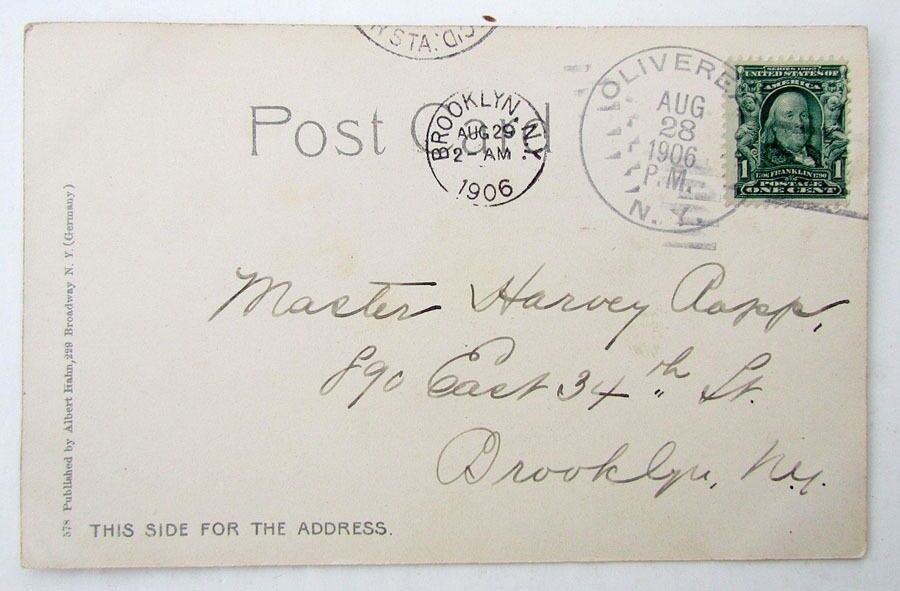 STA. D.(C
Post Card
BROOKLYN, N.Y.
AUG 29
2- AM
1906
OLIVEREA
AUG
28
1906
P.M.
N. Y.
SERIES 1902
UNITED STATES OF
AMERICA
1 1
1706 FRANKLIN 1790
POSTAGE
ONE CENT
Master Harvey Rapp,
890 East 34th St.
Brooklyn, N.Y.
578 Published by Albert Hahn, 299 Broadway N. Y. (Germany)
THIS SIDE FOR THE ADDRESS.